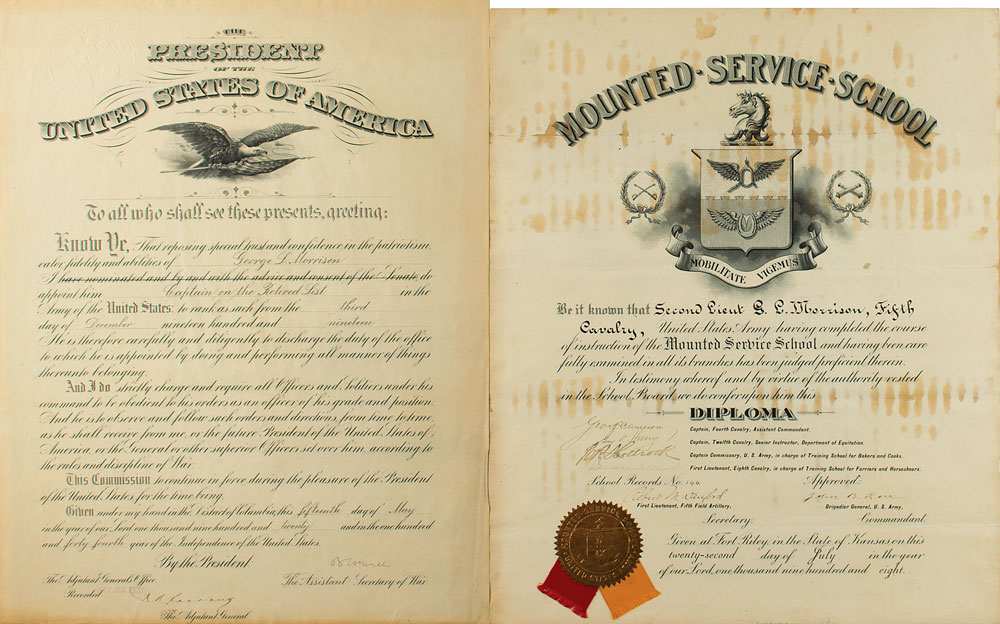 THE
PRESIDENT
OF THE
UNITED STATES OF AMERICA
To all who shall see these presents, greeting:
Know Ye, That reposing special trust and confidence in the patriotism,
valor, fidelity and abilities of George L. Morrison
I have nominated and by and with the advice and consent of the Senate do
appoint him Captain on the Retired List in the
Army of the United States: to rank as such from the third
day of December nineteen hundred and nineteen
He is therefore carefully and diligently to discharge the duty of the office
to which he is appointed by doing and performing all manner of things
thereunto belonging.
And I do strictly charge and require all Officers and Soldiers under his
command to be obedient to his orders as an officer of his grade and position.
And he is to observe and follow such orders and directions, from time to time,
as he shall receive from me, or the future President of the United States of
America, or the General or other superior Officers set over him, according to
the rules and discipline of War.
This Commission to continue in force during the pleasure of the President
of the United States, for the time being.
Given under my hand in the District of Columbia, this fifteenth day of May
in the year of our Lord one thousand nine hundred and twenty and in the one hundred
and forty-fourth year of the Independence of the United States.
By the President
The Adjutant General's Office. The Assistant Secretary of War.
Recorded
The Adjutant General
MOUNTED-SERVICE-SCHOOL
MOBILITATE VIGEMUS
Be it known that Second Lieut G. L. Morrison, Fifth
Cavalry, United States Army having completed the course
of instruction of the Mounted Service School and having been care
fully examined in all its branches has been judged proficient therein.
In testimony whereof and by virtue of the authority vested
in the School Board, we do confer upon him this
DIPLOMA
Captain, Fourth Cavalry, Assistant Commandant.
Captain, Twelfth Cavalry, Senior Instructor, Department of Equitation.
Captain Commissary, U. S. Army, in charge of Training School for Bakers and Cooks.
First Lieutenant, Eighth Cavalry, in charge of Training School for Farriers and Horseshoers.
School Records No. 144 Approved:
First Lieutenant, Fifth Field Artillery. Brigadier General, U. S. Army.
Secretary. Commandant.
Given at Fort Riley, in the State of Kansas on this
twenty-second day of July in the year
of our Lord, one thousand nine hundred and eight.